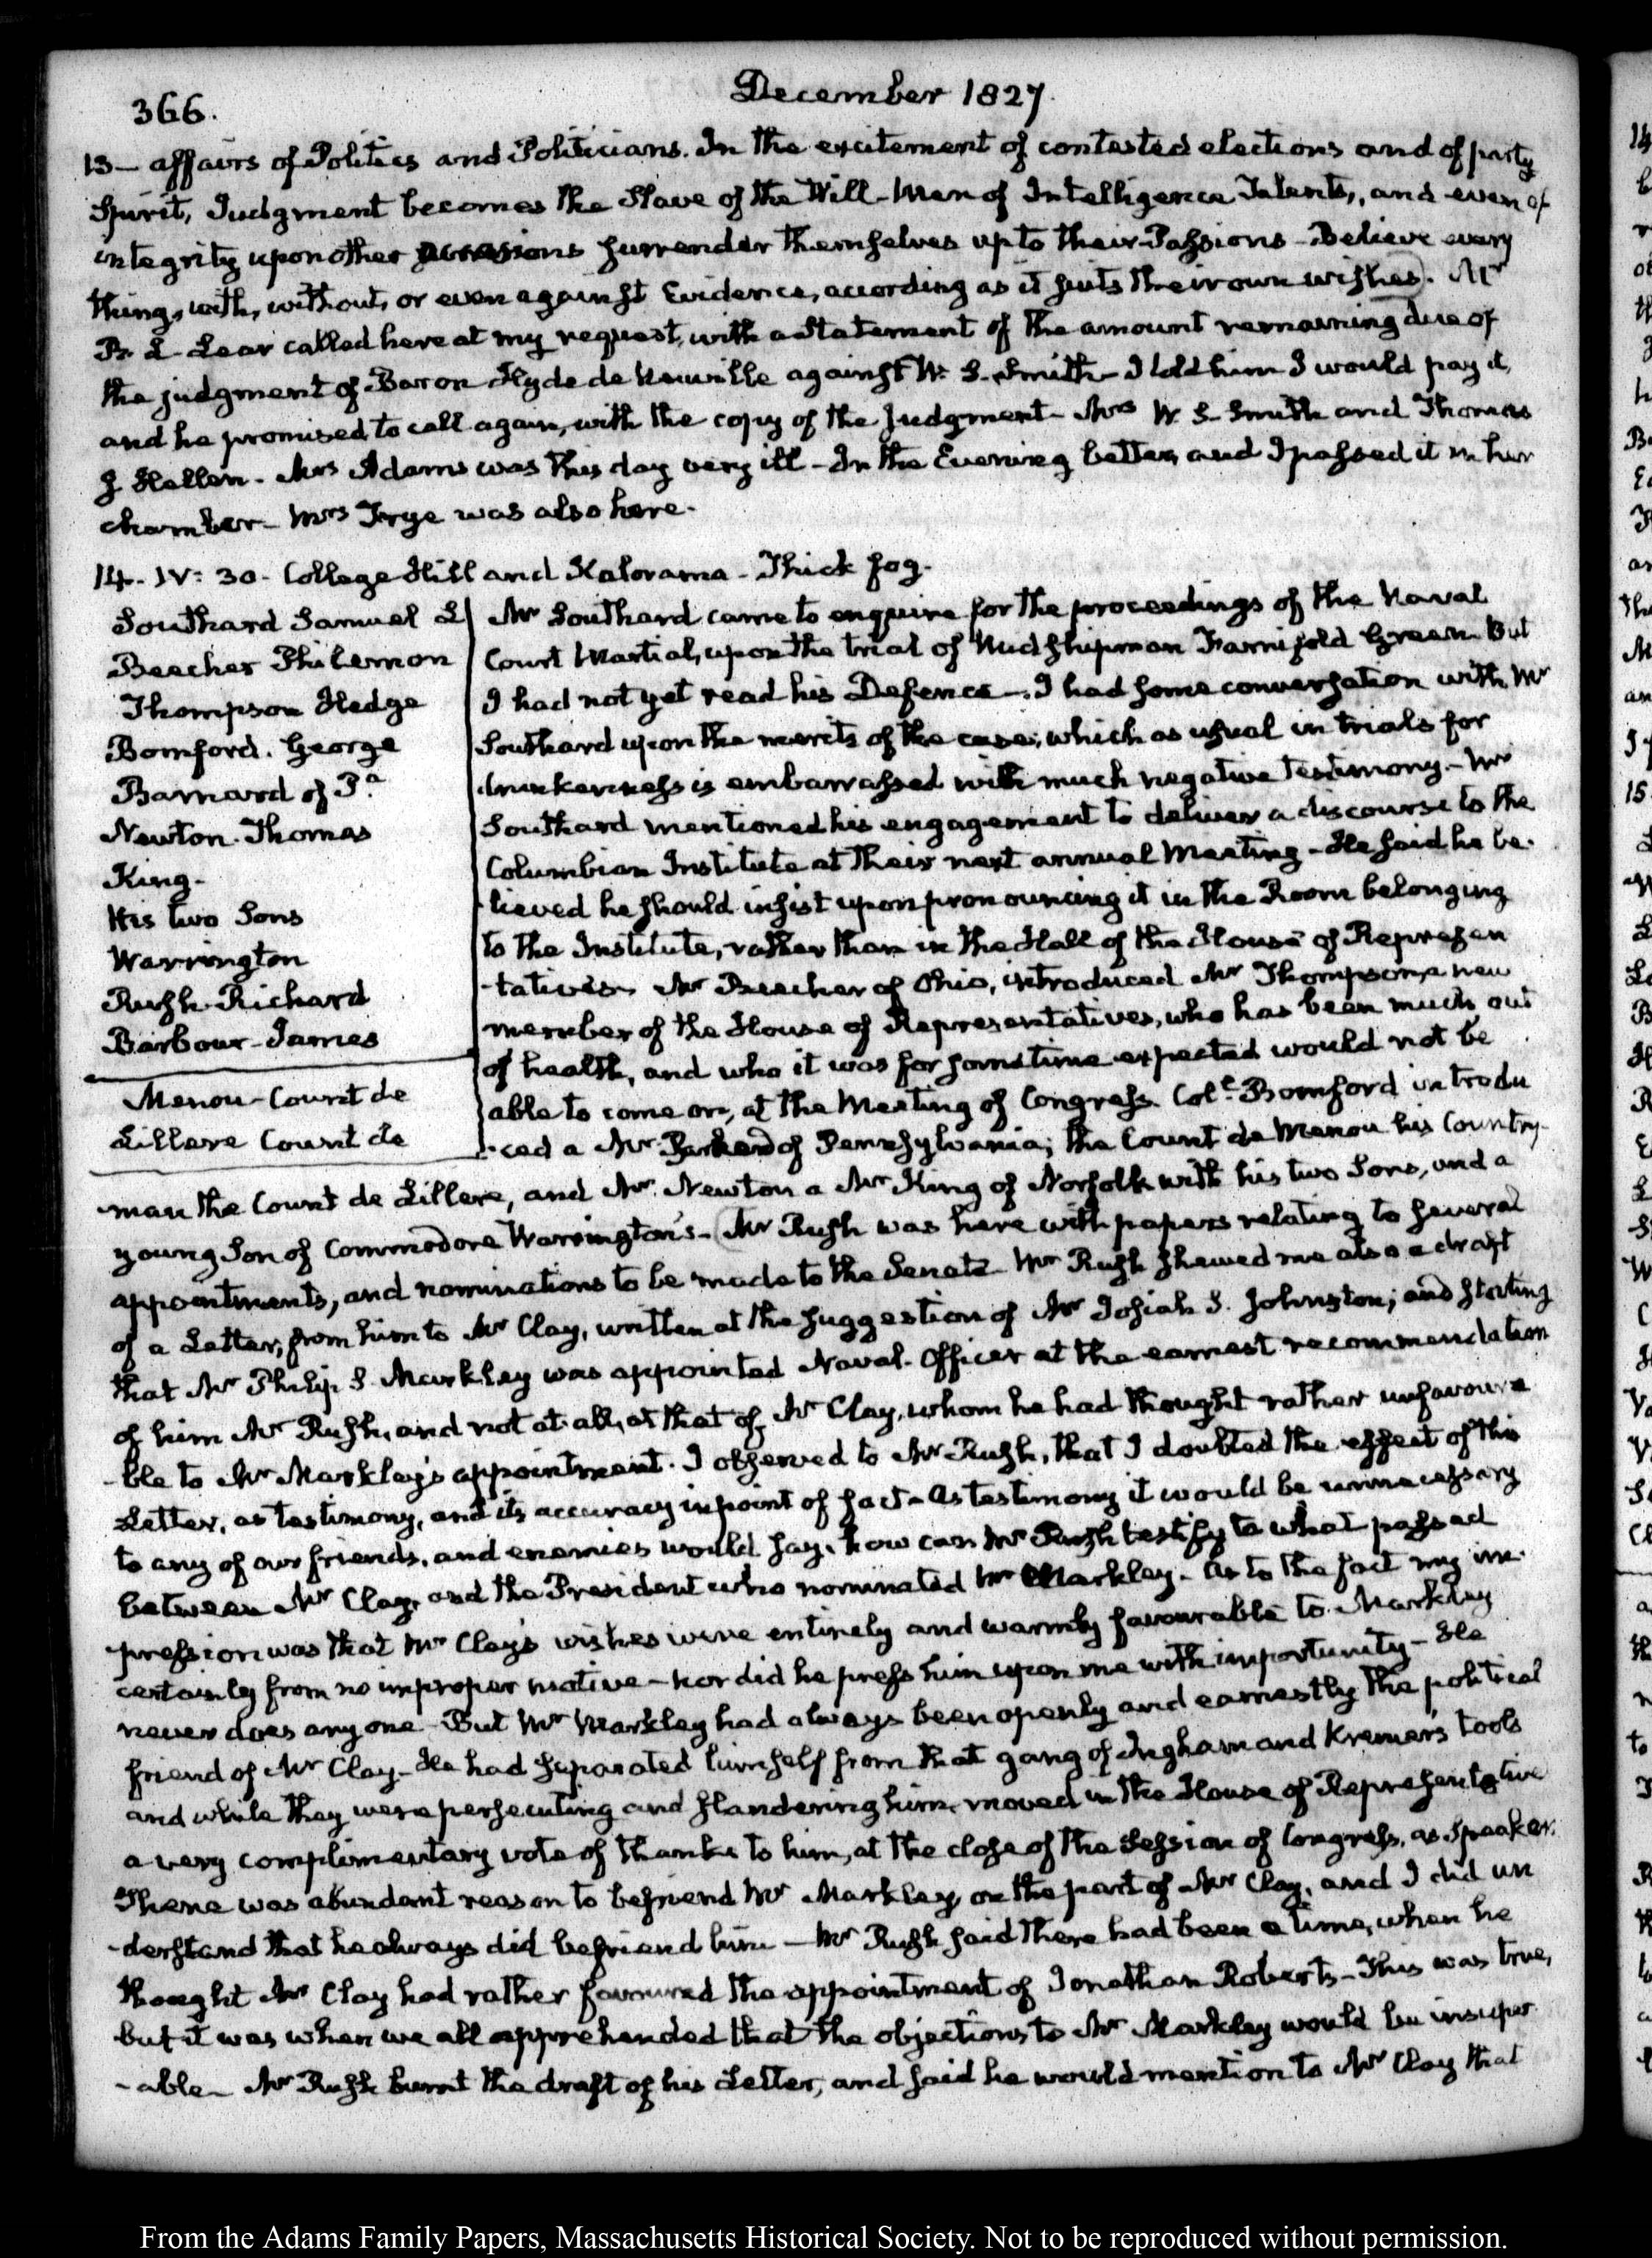 366.
December 1827.
13— affairs of Politics and Politicians. In the excitement of contested elections and of party
Spirit, Judgment becomes the Slave of the Will—Men of Intelligence Talents, and even of
integrity upon other occasions surrender themselves up to their Passions—Believe every
thing, with, without, or even against Evidence, according as it suits their own wishes. Mr
B. L. Lear called here at my request, with a Statement of the amount remaining due of
the judgment of Baron Hyde de Neuville against W. S. Smith—I told him I would pay it,
and he promised to call again, with the copy of the Judgment—Mrs W. S. Smith and Thomas
J Hellen. Mrs Adams was this day very ill—In the Evening better, and I passed it in her
chamber—Mrs Frye was also here.
14. IV: 30. College Hill and Kalorama—Thick fog.
Southard Samuel L
Beecher Philemon
Thompson Hedge
Bomford. George
Barnard of Pa.
Newton. Thomas
King—
His two Sons
Warrington
Rush Richard
Barbour—James
Menou—Count de
Lillers Count de
Mr Southard came to enquire for the proceedings of the Naval
Court Martial, upon the trial of Midshipman Farnifold Green. But
I had not yet read his Defence—I had some conversation with Mr
Southard upon the merits of the case; which as usual in trials for
drunkenness is embarrassed with much negative testimony.—Mr
Southard mentioned his engagement to deliver a discourse to the
Columbian Institute at their next annual Meeting—He said he be-
lieved he should insist upon pronouncing it in the Room belonging
to the Institute, rather than in the Hall of the House of Represen
-tatives. Mr Beecher of Ohio, introduced Mr Thompson, a new
member of the House of Representatives, who has been much out
of health, and who it was for some time expected would not be
able to come on, at the Meeting of Congress. Coll. Bomford introdu
-ced a Mr of Pennsylvania; the Count de Menou his Country-
man the Count de Lillers, and Mr Newton a Mr King of Norfolk with his two Sons, and a
young Son of Commodore Warrington's—Mr Rush was here with papers relating to several
appointments, and nominations to be made to the Senate—Mr Rush shewed me also a draft
of a Letter, from him to Mr Clay, written at the suggestion of Mr Josiah S. Johnston; and stating
that Mr Philip S. Markley was appointed Naval-Officer at the earnest recommendation
of him Mr Rush, and not at all, at that of Mr Clay, whom he had thought rather unfavoura
-ble to Mr Markley's appointment. I observed to Mr Rush, that I doubted the effect of this
Letter, as testimony, and its accuracy in point of fact—As testimony it would be unnecessary
to any of our friends, and enemies would say, how can Mr Rush testify to what passed
between Mr Clay, and the President who nominated Mr Markley—As to the fact my im-
pression was that Mr Clay's wishes were entirely and warmly favourable to Markley
certainly from no improper motive—nor did he press him upon me with importunity—He
never does any one—But Mr Markley had always been openly and earnestly the political
friend of Mr Clay—He had separated himself from that gang of Ingham and Kremer's tools
and while they were persecuting and slandering him, moved in the House of Representative
a very complimentary vote of thanks to him, at the close of the Session of Congress, as Speaker.
There was abundant reason to befriend Mr Markley on the part of Mr Clay, and I did un
-derstand that he always did befriend him—Mr Rush said there had been a time, when he
thought Mr Clay had rather favoured the appointment of Jonathan Roberts—This was true,
but it was when we all apprehended that the objections to Mr Markley would be insuper
-able—Mr Rush burnt the draft of his Letter, and said he would mention to Mr Clay that
From the Adams Family Papers, Massachusetts Historical Society. Not to be reproduced without permission.